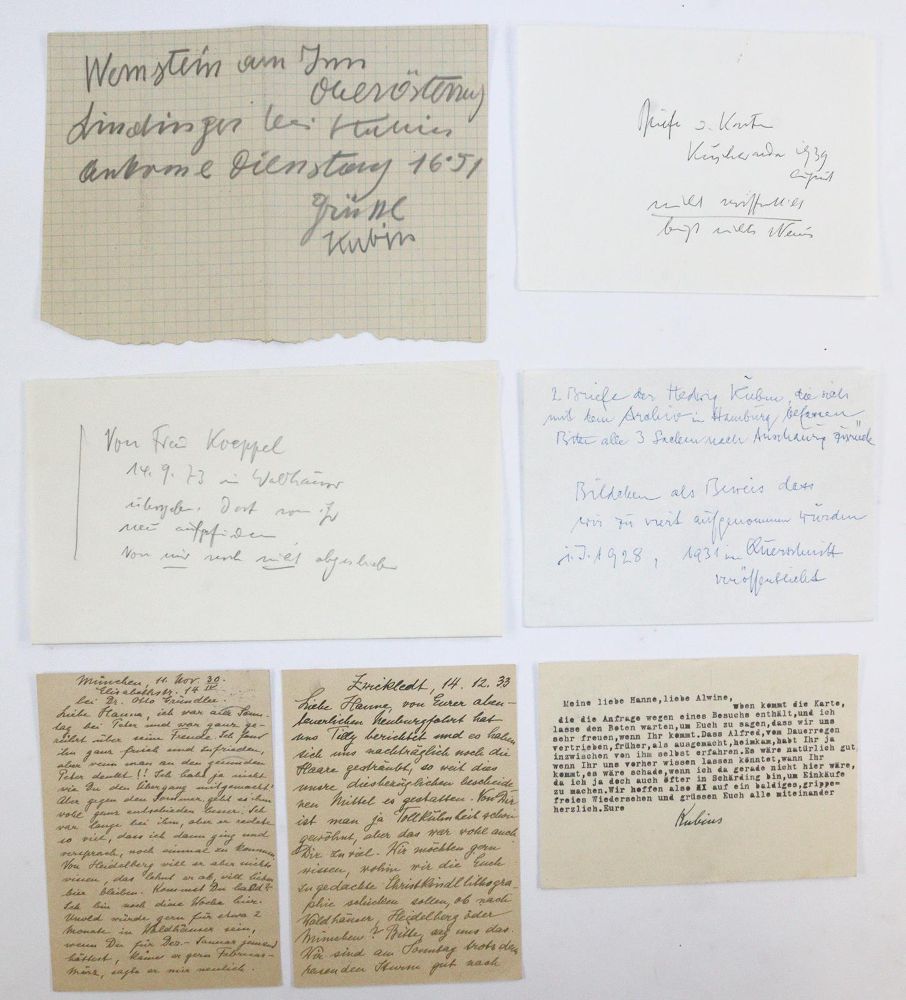 Wernstein am Inn
Oberösterreich
Lindinger bei Kubin
Ankomme Dienstag 16.51
Grüße
Kubin
Briefe u. Karte
1939
August
nicht
nichts Neues
Von Frau Koeppel
14.9.73 in Waldhäuser
übergeben. Dort vom
neu auffinden
Von mir noch nicht abgeschrieben
2 Briefe der Hedwig Kubin, die sich
mit dem Archiv in Hamburg befassen
Bitte alle 3 Sachen nach Anschauung zurück
Bildchen als Beweis dass
wir zu viert aufgenommen wurden
i. J. 1928, 1931 im Querschnitt
veröffentlicht
München, 11. Nov. 30.
Elisabethstr. 14 IV
bei Dr. Otto Gründler.
Liebe Hanna, ich war also Sonn-
tag bei Peter und war ganz ge-
rührt über seine Freude. Ich fand
ihn ganz frisch und zufrieden,
aber wenn man an den gesunden
Peter denkt!! Ich habe ja nicht
wie Du den Übergang mitgemacht.
Aber gegen den Sommer geht es ihm
wohl ganz entschieden besser. Ich
war lange bei ihm, aber er redete
so viel, dass ich dann ging und
versprach, noch einmal zu kommen.
Von Heidelberg will er aber nichts
wissen, das lehnt er ab, will lieber
hier bleiben. Kommst Du bald?
Ich bin noch diese Woche hier.
würde gern für etwa 2
Monate in Waldhäuser sein,
wenn Du für Dez.-Januar jemand
hättest, käme er gern Februar-
März, sagte er mir neulich.
Zwickledt, 14.12.33
Liebe Hanne, von Eurer aben-
teuerlichen Neuburgfahrt hat
uns Tilly berichtet und es haben
sich uns nachträglich noch die
Haare gesträubt, so weit das
unsre diesbezüglichen bescheide-
nen Mittel es gestatten. Von Dir
ist man ja Tollkühnheit schon
gewöhnt, aber das war wohl auch
Dir zu viel. Wir möchten gern
wissen, wohin wir die Euch
zugedachte Christkindllithogra-
phie schicken sollen, ob nach
Waldhäuser, Heidelberg oder
München? Bitte, sag uns das.
Wir sind am Sonntag trotz des
rasenden Sturm gut nach
Meine liebe Hanne, liebe Alwine,
eben kommt die Karte,
die die Anfrage wegen eines Besuchs enthält,und ich
lasse den Boten warten,um Euch zu sagen,dass wir uns
sehr freuen,wenn Ihr kommt.Dass Alfred,vom Dauerregen
vertrieben,früher,als ausgemacht,heimkam,habt Ihr ja
inzwischen von ihm selbst erfahren.Es wäre natürlich gut
wenn Ihr uns vorher wissen lassen könntet,wann Ihr
kommt,es wäre schade,wenn ich da gerade nicht hier wäre,
da ich ja doch auch öfter in Schärding bin,um Einkäufe
zu machen.Wir hoffen also XX auf ein baldiges,grippe-
freies Wiedersehen und grüssen Euch alle miteinander
herzlich.Eure
Kubins